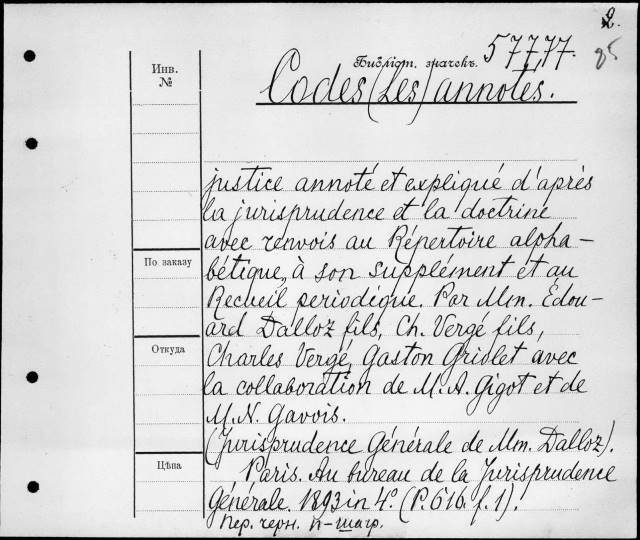 2.
Библіот. значекъ. 57777.
95
Инв.
№
Codes (Les) annotés.
justice annoté et expliqué d'après
la jurisprudence et la doctrine
avec renvois au Répertoire alpha-
bétique, à son supplément et au
Recueil periodique. Par Mm. Édou-
ard Dalloz fils, Ch. Vergé fils,
Charles Vergé, Gaston Griolet avec
la collaboration de M.A. Gigot et de
M.N. Gavois.
(Jurisprudence Générale de Mm. Dalloz).
Paris. Au bureau de la Jurisprudence
Générale. 1893 in 4º. (P. 616. f. 1).
Пер. черн. п-шагр.
По заказу
Откуда
Цѣна